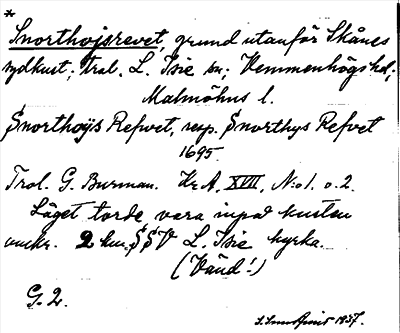 *
Snorthojsrevet, grund utanför Skånes
sydkust; trol. L. Isie sn; Vemmenhögs hd;
Malmöhus l.
Snorthoÿs Refvet, resp. Snorthys Refvet
1695.
Trol. G. Burman. Kr.A. XVII, No 1. o. 2.
Läget torde vara inpå kusten
omkr. 2 km SSV L. Isie kyrka.
(Vänd!)
G. 2.
1937.